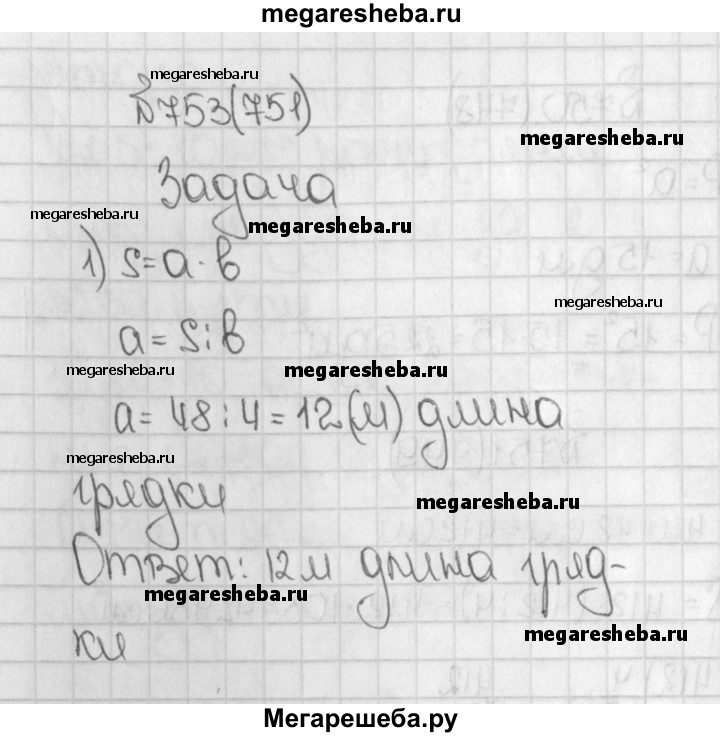 megaresheba.ru
megaresheba.ru
№753(751)
megaresheba.ru
Задача
megaresheba.ru
megaresheba.ru
1) S=a·в
megaresheba.ru
a=S:в
megaresheba.ru
megaresheba.ru
a=48:4=12(м) длина
megaresheba.ru
грядки
megaresheba.ru
Ответ: 12м длина гряд-
megaresheba.ru
ки
megaresheba.ru
Мегарешеба.ру